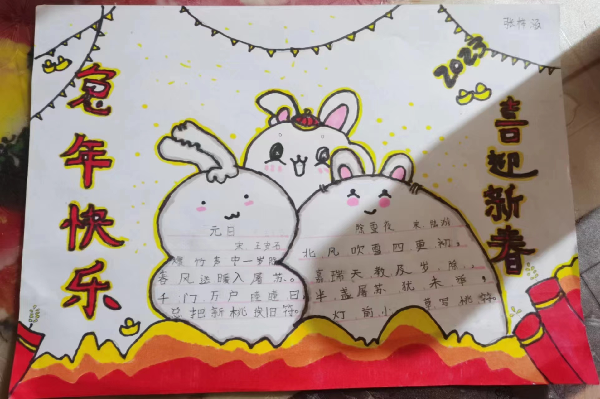 张梓涵
2023
兔年快乐
喜迎新春
元日
宋 王安石
爆竹声中一岁除
春风送暖入屠苏。
千门万户曈曈日
总把新桃换旧符。
除夜雪 宋 陆游
北风吹雪四更初,
嘉瑞天教及岁除。
半盏屠苏犹未举,
灯前小草写桃符